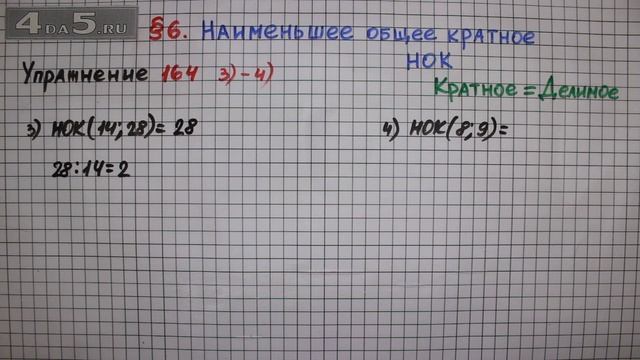 4DA5.RU
§6. Наименьшее общее кратное
НОК
Упражнение 164 3)-4)
Кратное = Делимое
3) НОК(14; 28)= 28
4) НОК(8; 9)=
28:14=2